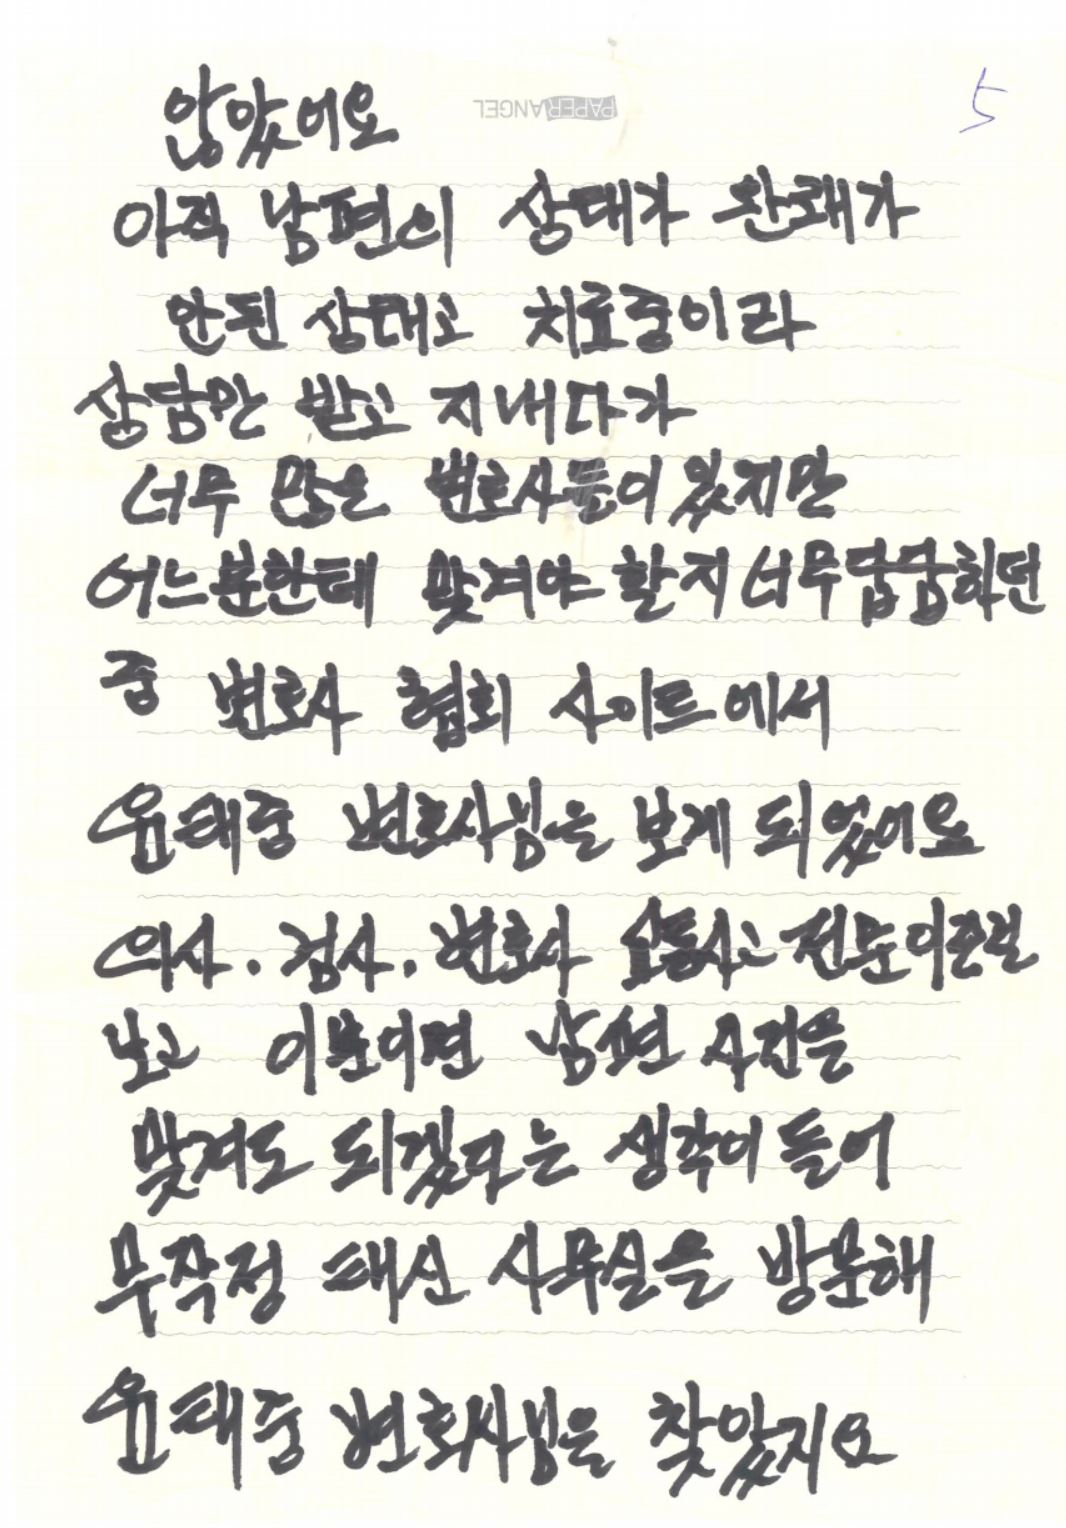 5
PAPER ANGEL
않았어요
아직 남편의 상태가 완쾌가
안된 상태고 치료중이라
상담만 받고 지내다가
너무 많은 변호사들이 있지만
어느분한테 맞겨야 할지 너무답답하던
중 변호사 협회 사이트에서
윤태중 변호사님을 보게 되었어요
의사. 검사. 변호사 교통사고 전문이란걸
보고 이분이면 남편 사건을
맞겨도 되겠다는 생각이 들어
무작정 태신 사무실을 방문해
윤태중 변호사님을 찾았지요